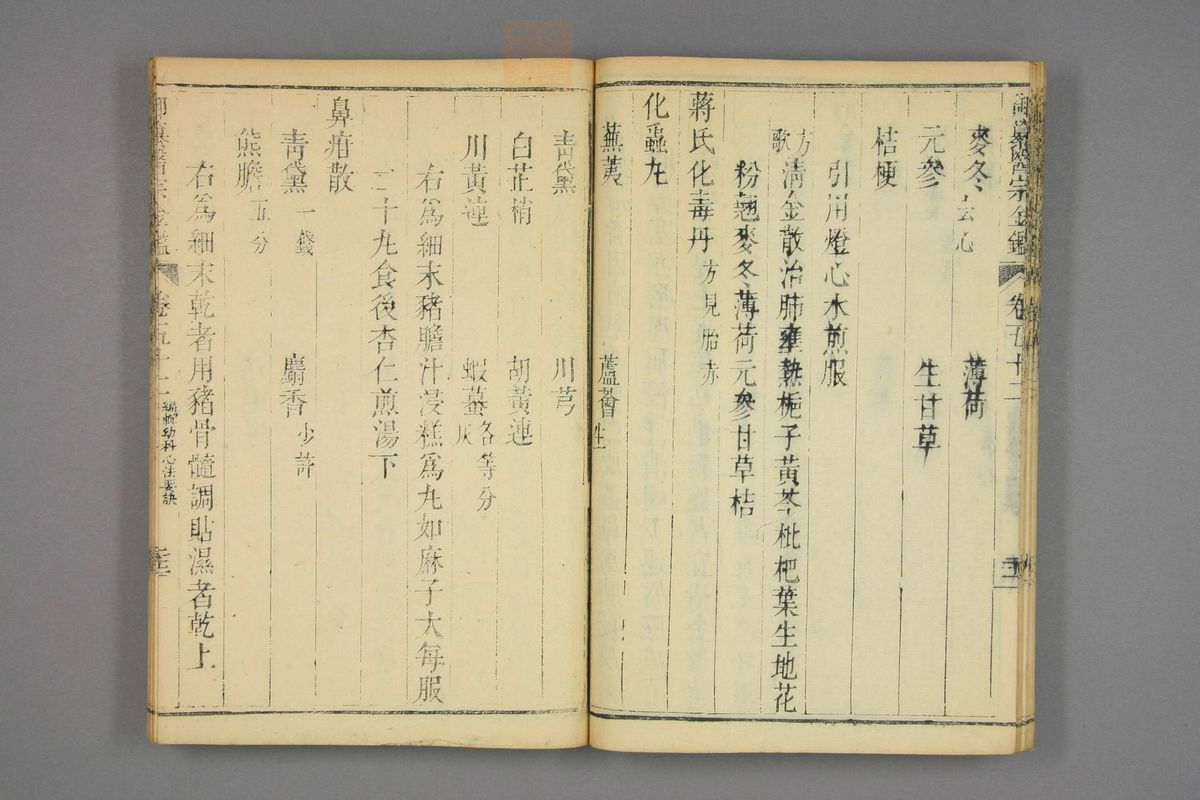 御纂醫宗金鑑 卷五十二
麥冬去心 薄荷
元參 生甘草
桔梗
引用燈心水煎服
方歌 清金散治肺壅熱梔子黃芩枇杷葉生地花
粉翹麥冬薄荷元參甘草桔
蔣氏化毒丹方見胎赤
化蟲丸
蕪荑 蘆薈生
青黛 川芎
白芷梢 胡黃連
川黃連 蝦蟇灰各等分
右為細末豬膽汁浸糕為丸如麻子大每服
二十丸食後杏仁煎湯下
鼻疳散
青黛一錢 麝香少許
熊膽五分
右為細末乾者用豬骨髓調貼濕者乾上
御纂醫宗金鑑 卷五十二 編輯幼科心法要訣